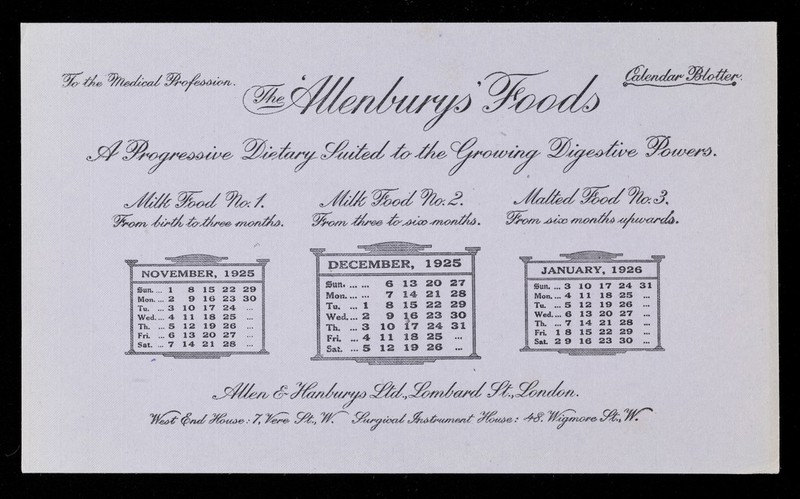 To the Medical Profession.
Calendar Blotter.
The 'Allenburys' Foods
A Progressive Dietary Suited to the Growing Digestive Powers.
Milk Food No. 1.
From birth to three months.
Milk Food No. 2.
From three to six months.
Malted Food No. 3.
From six months upwards.
NOVEMBER, 1925
Sun. ... 1 8 15 22 29
Mon. ... 2 9 16 23 30
Tu. ... 3 10 17 24 ...
Wed. ... 4 11 18 25 ...
Th. ... 5 12 19 26 ...
Fri. ... 6 13 20 27 ...
Sat. ... 7 14 21 28 ...
DECEMBER, 1925
Sun. ... ... 6 13 20 27
Mon. ... ... 7 14 21 28
Tu. ... 1 8 15 22 29
Wed. ... 2 9 16 23 30
Th. ... 3 10 17 24 31
Fri. ... 4 11 18 25 ...
Sat. ... 5 12 19 26 ...
JANUARY, 1926
Sun. ... 3 10 17 24 31
Mon. ... 4 11 18 25 ...
Tu. ... 5 12 19 26 ...
Wed. ... 6 13 20 27 ...
Th. ... 7 14 21 28 ...
Fri. 1 8 15 22 29 ...
Sat. 2 9 16 23 30 ...
Allen & Hanburys Ltd., Lombard St., London.
West End House: 7, Vere St., W. Surgical Instrument House: 48. Wigmore St., W.